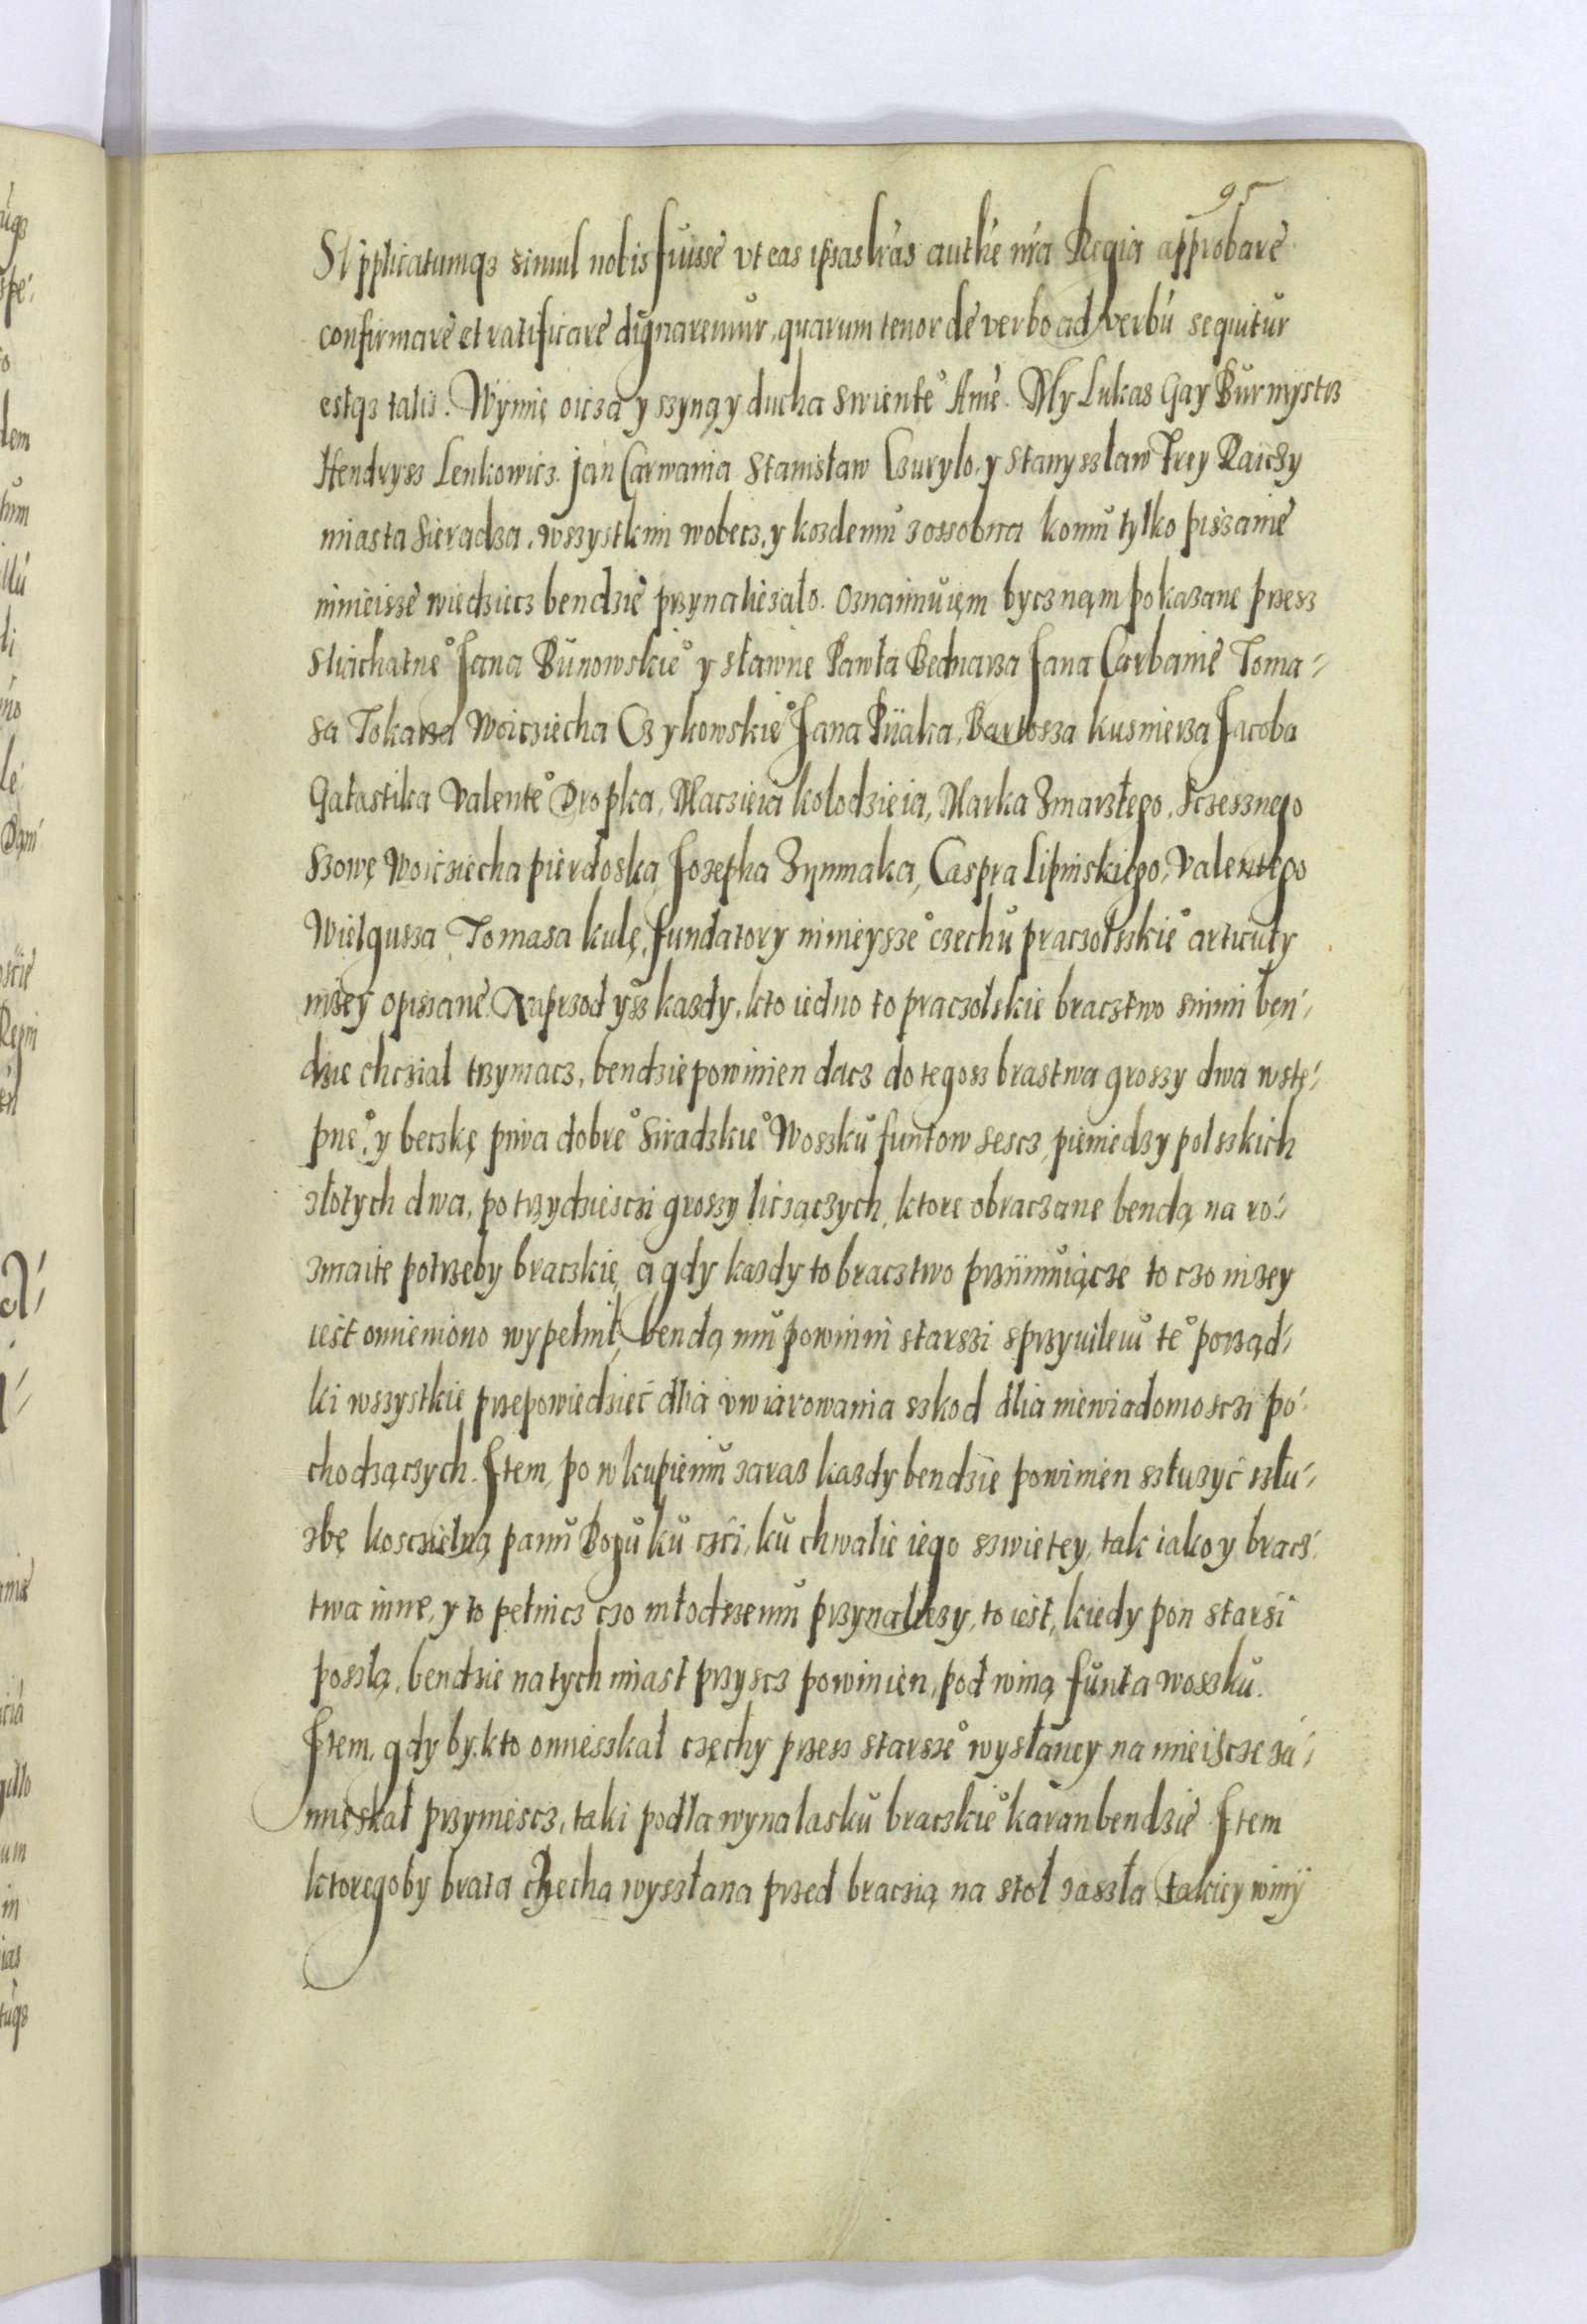 95
Supplicatumqz simul nobis fuisse vt eas ipsas lras authe nra Regia approbare
confirmare et ratificare dignaremur, quarum tenor de verbo ad verbu sequitur
estqz talis. Wymię oicza y szyną y ducha swiente° Ame. My Lukas Gay Burmystrz
Hendrysz Lenkowicz. Jan Carwania Stanisław Czurylo, y Stanyszław Trey Raiczy
miasta Sieradza, wszystkim wobecz, y kozdemu zossobna komu tylko piszanie
nінieisze wiedziecz bendzie przynaliezało. Oznaimuięm bycz nąm pokazane przesz
Sliachatne° Jana Bunowskie° y sławne Pawła Bednarza Jana Carbanie Toma-
sa Tokarza Woicziecha Czykowskie° Jana Piiaka, Bartosza kusnierza Jacoba
Gałastika Valente° Dropka, Maczieia kolodzieia, Marka Zmarzłego, Sczesznego
Szowę Woicziecha pierdoska Jozepha Zynmaka, Caspra Lipinskiego, Valentego
Wielgusza Tomasa kulę, fundatoryninieysze° czechu praczołskie° articuły
nizey opissane. Naprzod ysz kazdy, kto iedno to praczolskie bracztwo snimi ben-
dzie chczial trzymacz, bendzie powinien dacz do tegosz brastwa groszy dwa wstę-
pne°, y beczkę piwa dobre° Siradzkie° Woszku funtow sescz, pieniedzy polszkich
złotych dwa, po trzydziesczi groszy liczączych, ktore obraczane bendą na ro-
zmaite potrzeby braczkie, a gdy kazdy to bracztwo prziimuiącze to czo nizey
iest omieniono wypełnił, bendą mu powinni starszi sprzyuileiu te° porząd-
ki wszystkie przepowiedzieć dlia vwiarowania szkod dlia niewiadomosczi po-
chodzączych. Item, po wkupieniu zaraz kazdy bendzie powinien szłuzyć szłu-
zbę kosczielną panu Bogu ku czći, ku chwalie iego szwietey, tak iako y bracz-
twa inne, y to pełnicz czo młodszemu przynaliezy, to iest, kiedy pon starsi
poszlą, bendzie natych miast przyscz powinien, pod winą funta woszku.
Item, gdy by kto omieszkał częchy przesz starsze° wysłaney na mieiscze za-
mięskał przyniescz, taki podla wynalasku braczkie° karan bendzie Item
ktoregoby brata czecha wyszłana przed braczią na stoł zaszła takiey winÿ